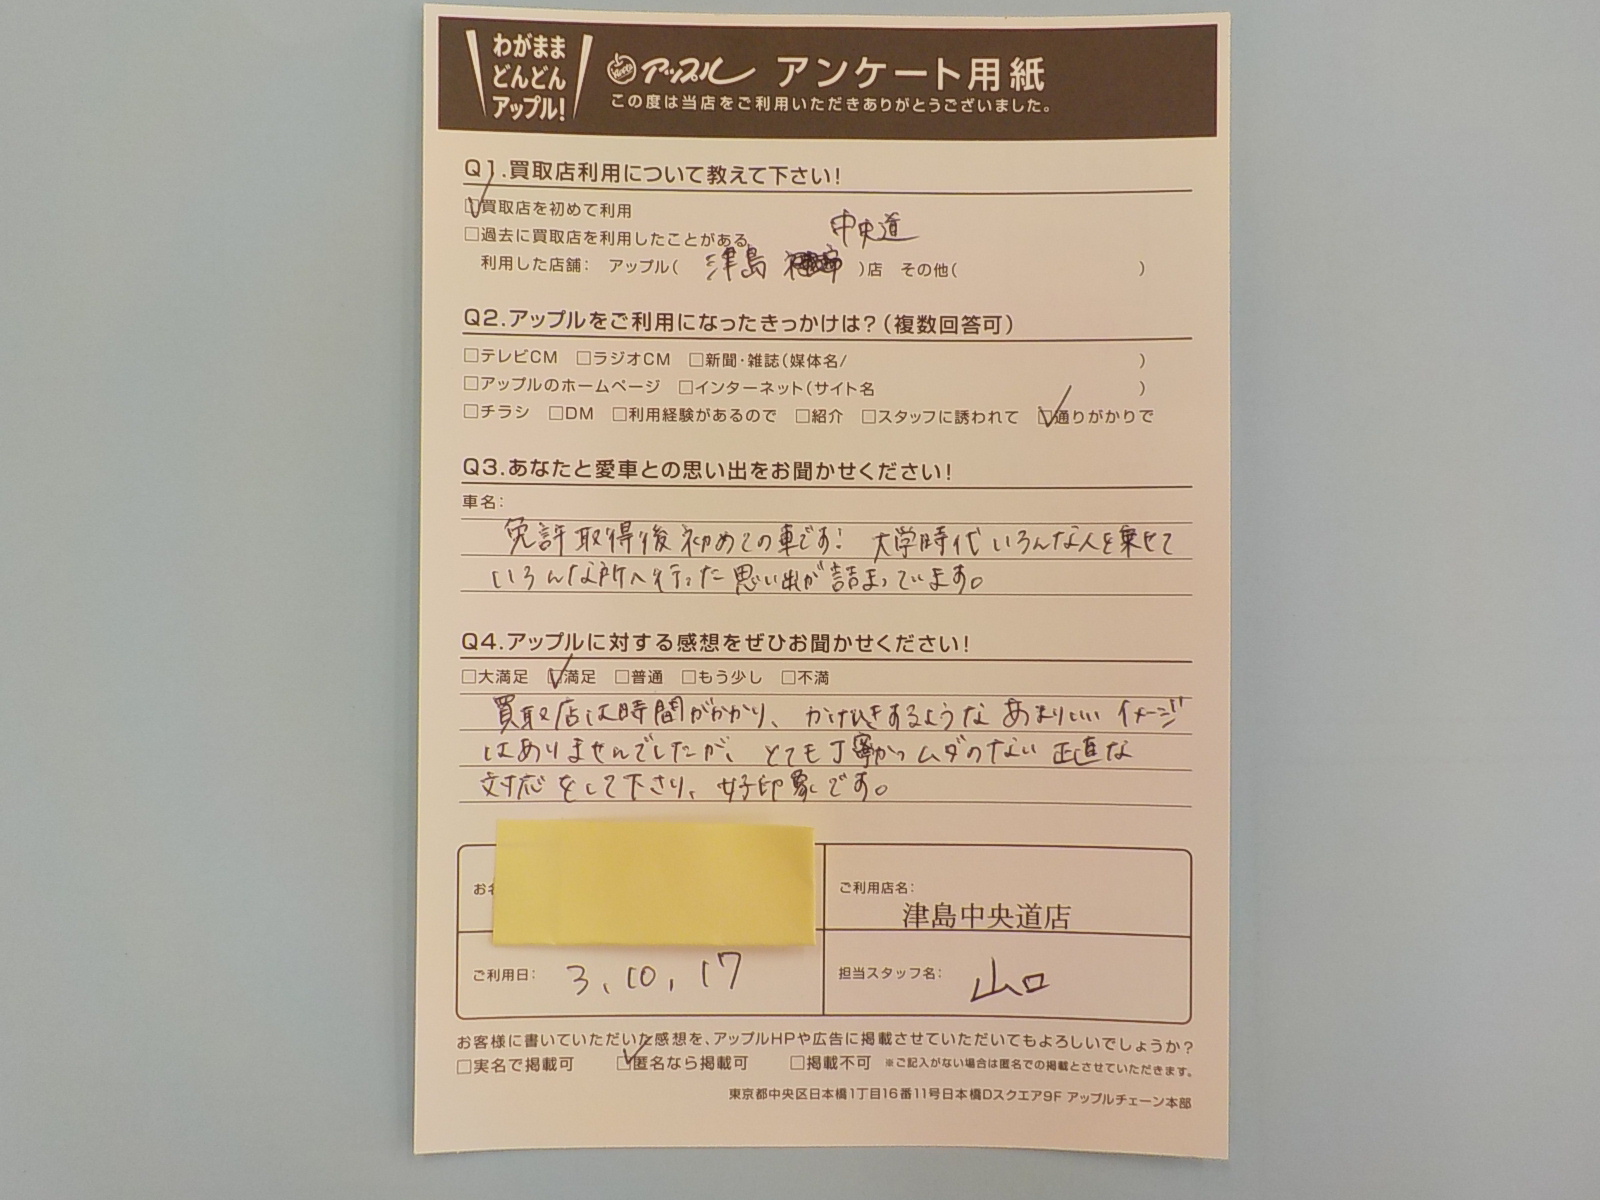 わがまま
どんどん
アップル!
アップル アンケート用紙
この度は当店をご利用いただきありがとうございました。
Q1.買取店利用について教えて下さい!
☑買取店を初めて利用
□過去に買取店を利用したことがある
中央道
利用した店舗: アップル( 津島 )店 その他( )
Q2.アップルをご利用になったきっかけは?(複数回答可)
□テレビCM □ラジオCM □新聞・雑誌(媒体名/ )
□アップルのホームページ □インターネット(サイト名 )
□チラシ □DM □利用経験があるので □紹介 □スタッフに誘われて ☑通りがかりで
Q3.あなたと愛車との思い出をお聞かせください!
車名:
免許取得後初めての車です! 大学時代いろんな人を乗せて
いろんな所へ行った思い出が詰まっています。
Q4.アップルに対する感想をぜひお聞かせください!
□大満足 ☑満足 □普通 □もう少し □不満
買取店は時間がかかり、かけひきするようなあまりいいイメージ
はありませんでしたが、とても丁寧かつムダのない正直な
対応をして下さり、好印象です。
お名
ご利用店名:
津島中央道店
ご利用日: 3.10.17
担当スタッフ名: 山口
お客様に書いていただいた感想を、アップルHPや広告に掲載させていただいてもよろしいでしょうか?
□実名で掲載可 ☑匿名なら掲載可 □掲載不可 ※ご記入がない場合は匿名での掲載とさせていただきます。
東京都中央区日本橋1丁目16番11号日本橋Dスクエア9F アップルチェーン本部